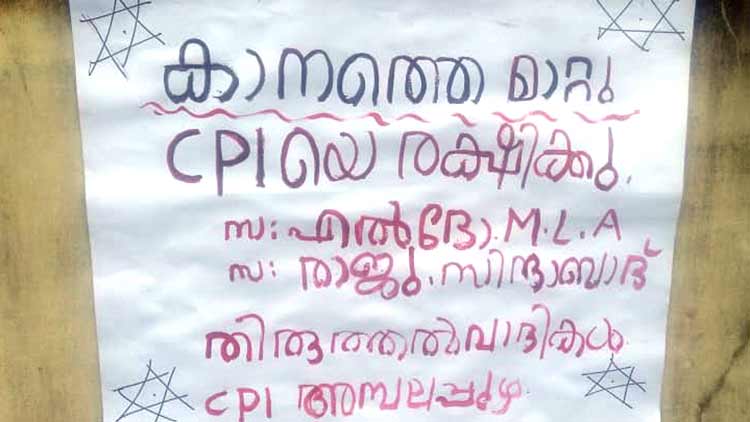 കാനത്തെ മാറ്റു
CPI യെ രക്ഷിക്കു.
സ: എൽദോ. M.L.A
സ: രാജു. സിന്ദാബാദ്
തിരുത്തൽവാദികൾ
CPI അമ്പലപ്പുഴ